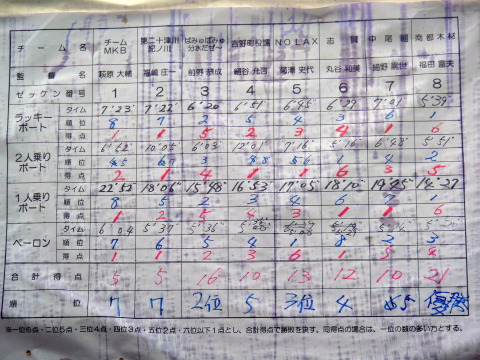 チーム名 チームMKB 第二十津川紀ノ川 ぱみゅぱみゅ分水だぜ〜 吉野町役場 NO LAX 志賀 中尾組 南都木材
監督名 萩原 大輔 福嶋 庄一 前防 恭成 細谷 允啓 尾澤 史代 丸谷 和美 細野 嵩世 福田 富夫
ゼッケン番号 1 2 3 4 5 6 7 8
ラッキーボート
タイム 7'23" 7'22" 6'20 6'51 6'45 6'29 7'01 5'39"
順位 8 7 2 5 4 3 6 1
得点 1 1 5 2 3 4 1 6
2人乗りボート
タイム 6'52" 10'05 6'03" 12'01 7'16 5'16 6'48" 5'51"
順位 3 1 4 2
得点 2 1 4 1 1 6 3 5
1人乗りボート
タイム 22'52" 18'06" 15'48" 16'53 17'05" 18'10" 19'25" 14'27
順位 8 5 2 3 4 6 7 1
得点 1 2 5 4 3 1 1 6
ペーロン
タイム 6'04 5'37 5'36"
順位 7 6 5 4 1 8 2 3
得点 1 1 2 3 6 1 5 4
合計得点 5 5 16 10 13 12 10 21
順位 7 7 2位 5 3位 4 5 優勝
※一位6点・二位5点・三位4点・四位3点・五位2点・六位以下1点とし、合計得点で勝敗を決す。同得点の場合は、一位の数の多い方とする。